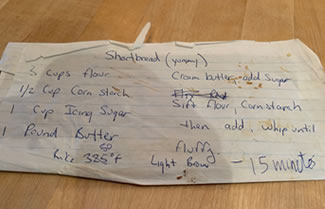 Shortbread (yummy)
3 Cups flour
1/2 Cup Corn starch
1 Cup Icing Sugar
1 Pound Butter
385°F
Cream butter, add Sugar
Sift flour, Cornstarch
then add, whip until
fluffy
Light Brown – 15 minutes